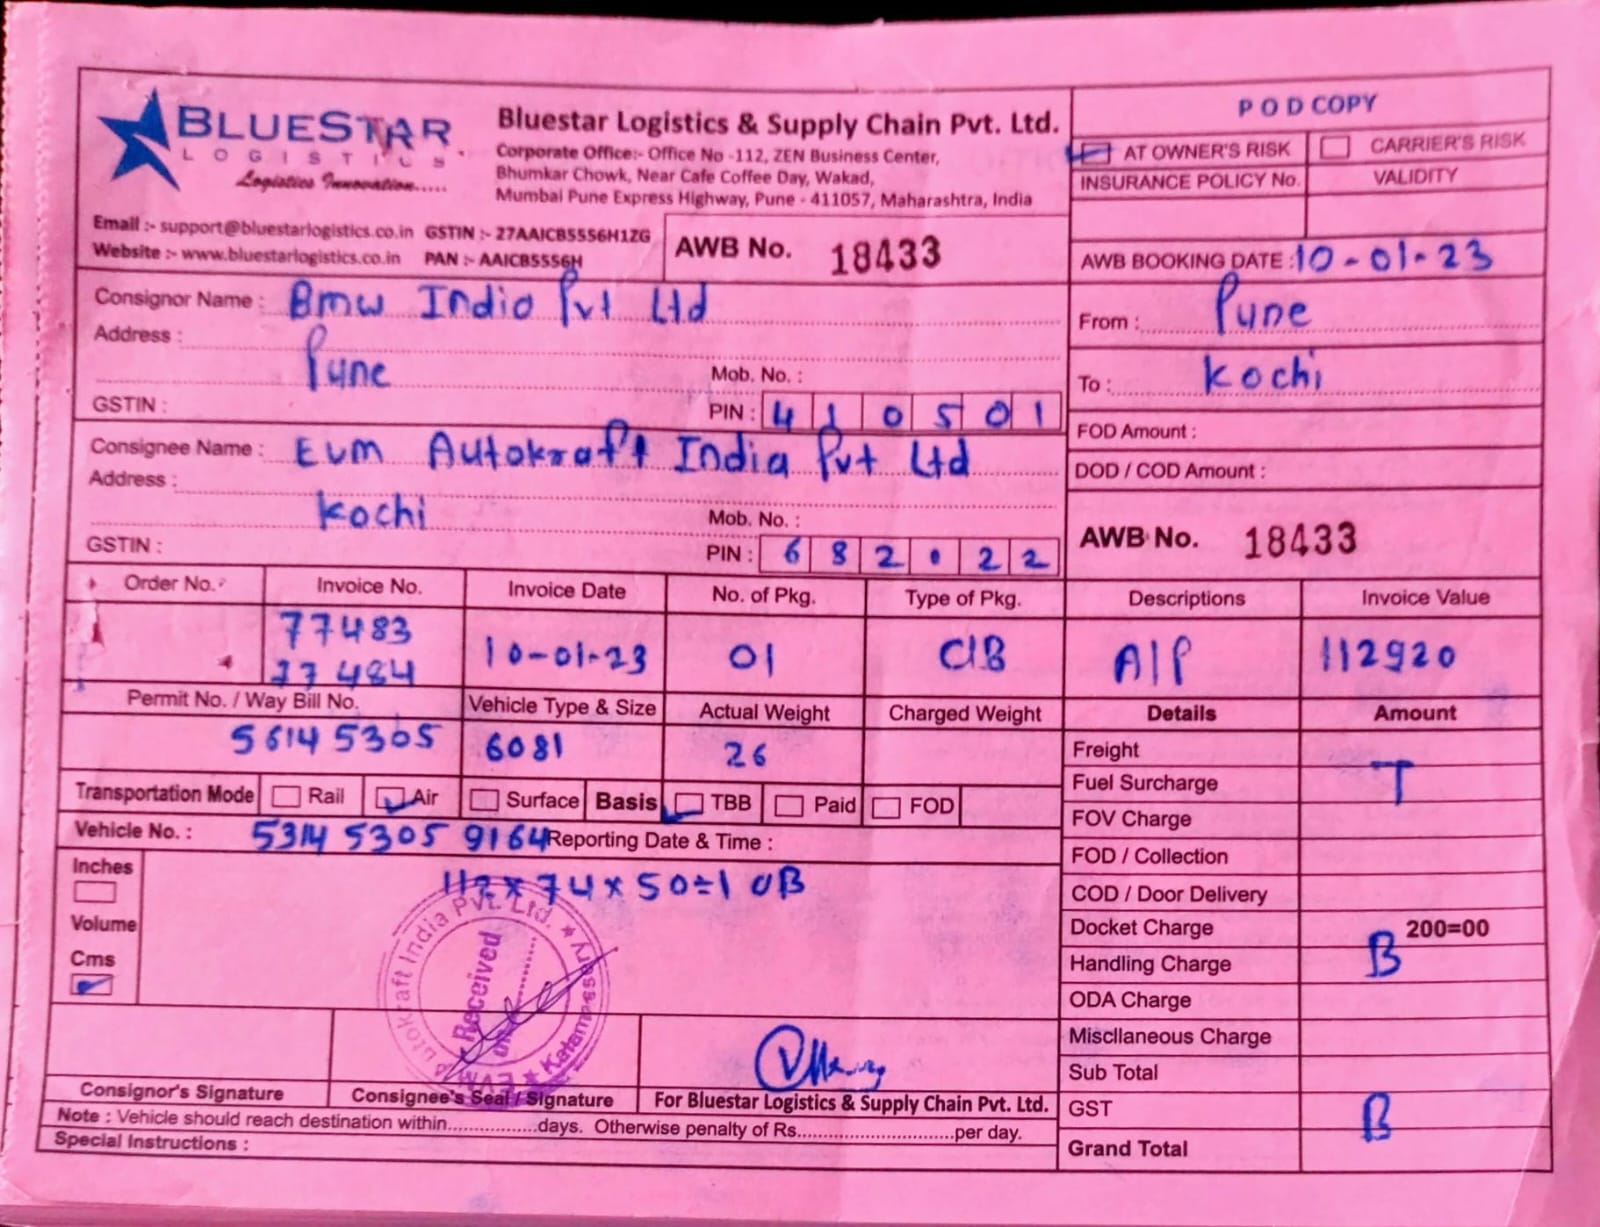 BLUESTAR
LOGISTICS
Logistics Innovation.....
Bluestar Logistics & Supply Chain Pvt. Ltd.
Corporate Office:- Office No -112, ZEN Business Center,
Bhumkar Chowk, Near Cafe Coffee Day, Wakad,
Mumbai Pune Express Highway, Pune - 411057, Maharashtra, India
Email :- support@bluestarlogistics.co.in GSTIN :- 27AAICB5556H1ZG
Website :- www.bluestarlogistics.co.in PAN :- AAICB5556H
AWB No. 18433
POD COPY
AT OWNER'S RISK CARRIER'S RISK
INSURANCE POLICY No. VALIDITY
AWB BOOKING DATE : 10-01-23
Consignor Name : Bmw India Pvt Ltd
Address :
Pune Mob. No. :
GSTIN : PIN : 410501
From : Pune
To : Kochi
Consignee Name : Evm Autokraft India Pvt Ltd
Address :
Kochi Mob. No. :
GSTIN : PIN : 682022
FOD Amount :
DOD / COD Amount :
AWB No. 18433
Order No. Invoice No. Invoice Date No. of Pkg. Type of Pkg. Descriptions Invoice Value
77483
77484 10-01-23 01 C/B A/P 112920
Permit No. / Way Bill No. Vehicle Type & Size Actual Weight Charged Weight Details Amount
5614 5305 6081 26
Transportation Mode Rail Air Surface Basis TBB Paid FOD
Vehicle No. : 5314 5305 9164 Reporting Date & Time :
Inches
Volume
Cms
112 x 74 x 50 = 1 C/B
Freight
Fuel Surcharge T
FOV Charge
FOD / Collection
COD / Door Delivery
Docket Charge 200=00
Handling Charge B
ODA Charge
Miscllaneous Charge
Sub Total
GST B
Grand Total
EVM Autokraft India Pvt. Ltd. ★ Katamassery ★
Received
on
Consignor's Signature Consignee's Seal / Signature For Bluestar Logistics & Supply Chain Pvt. Ltd.
Note : Vehicle should reach destination within.................days. Otherwise penalty of Rs.............................per day.
Special Instructions :